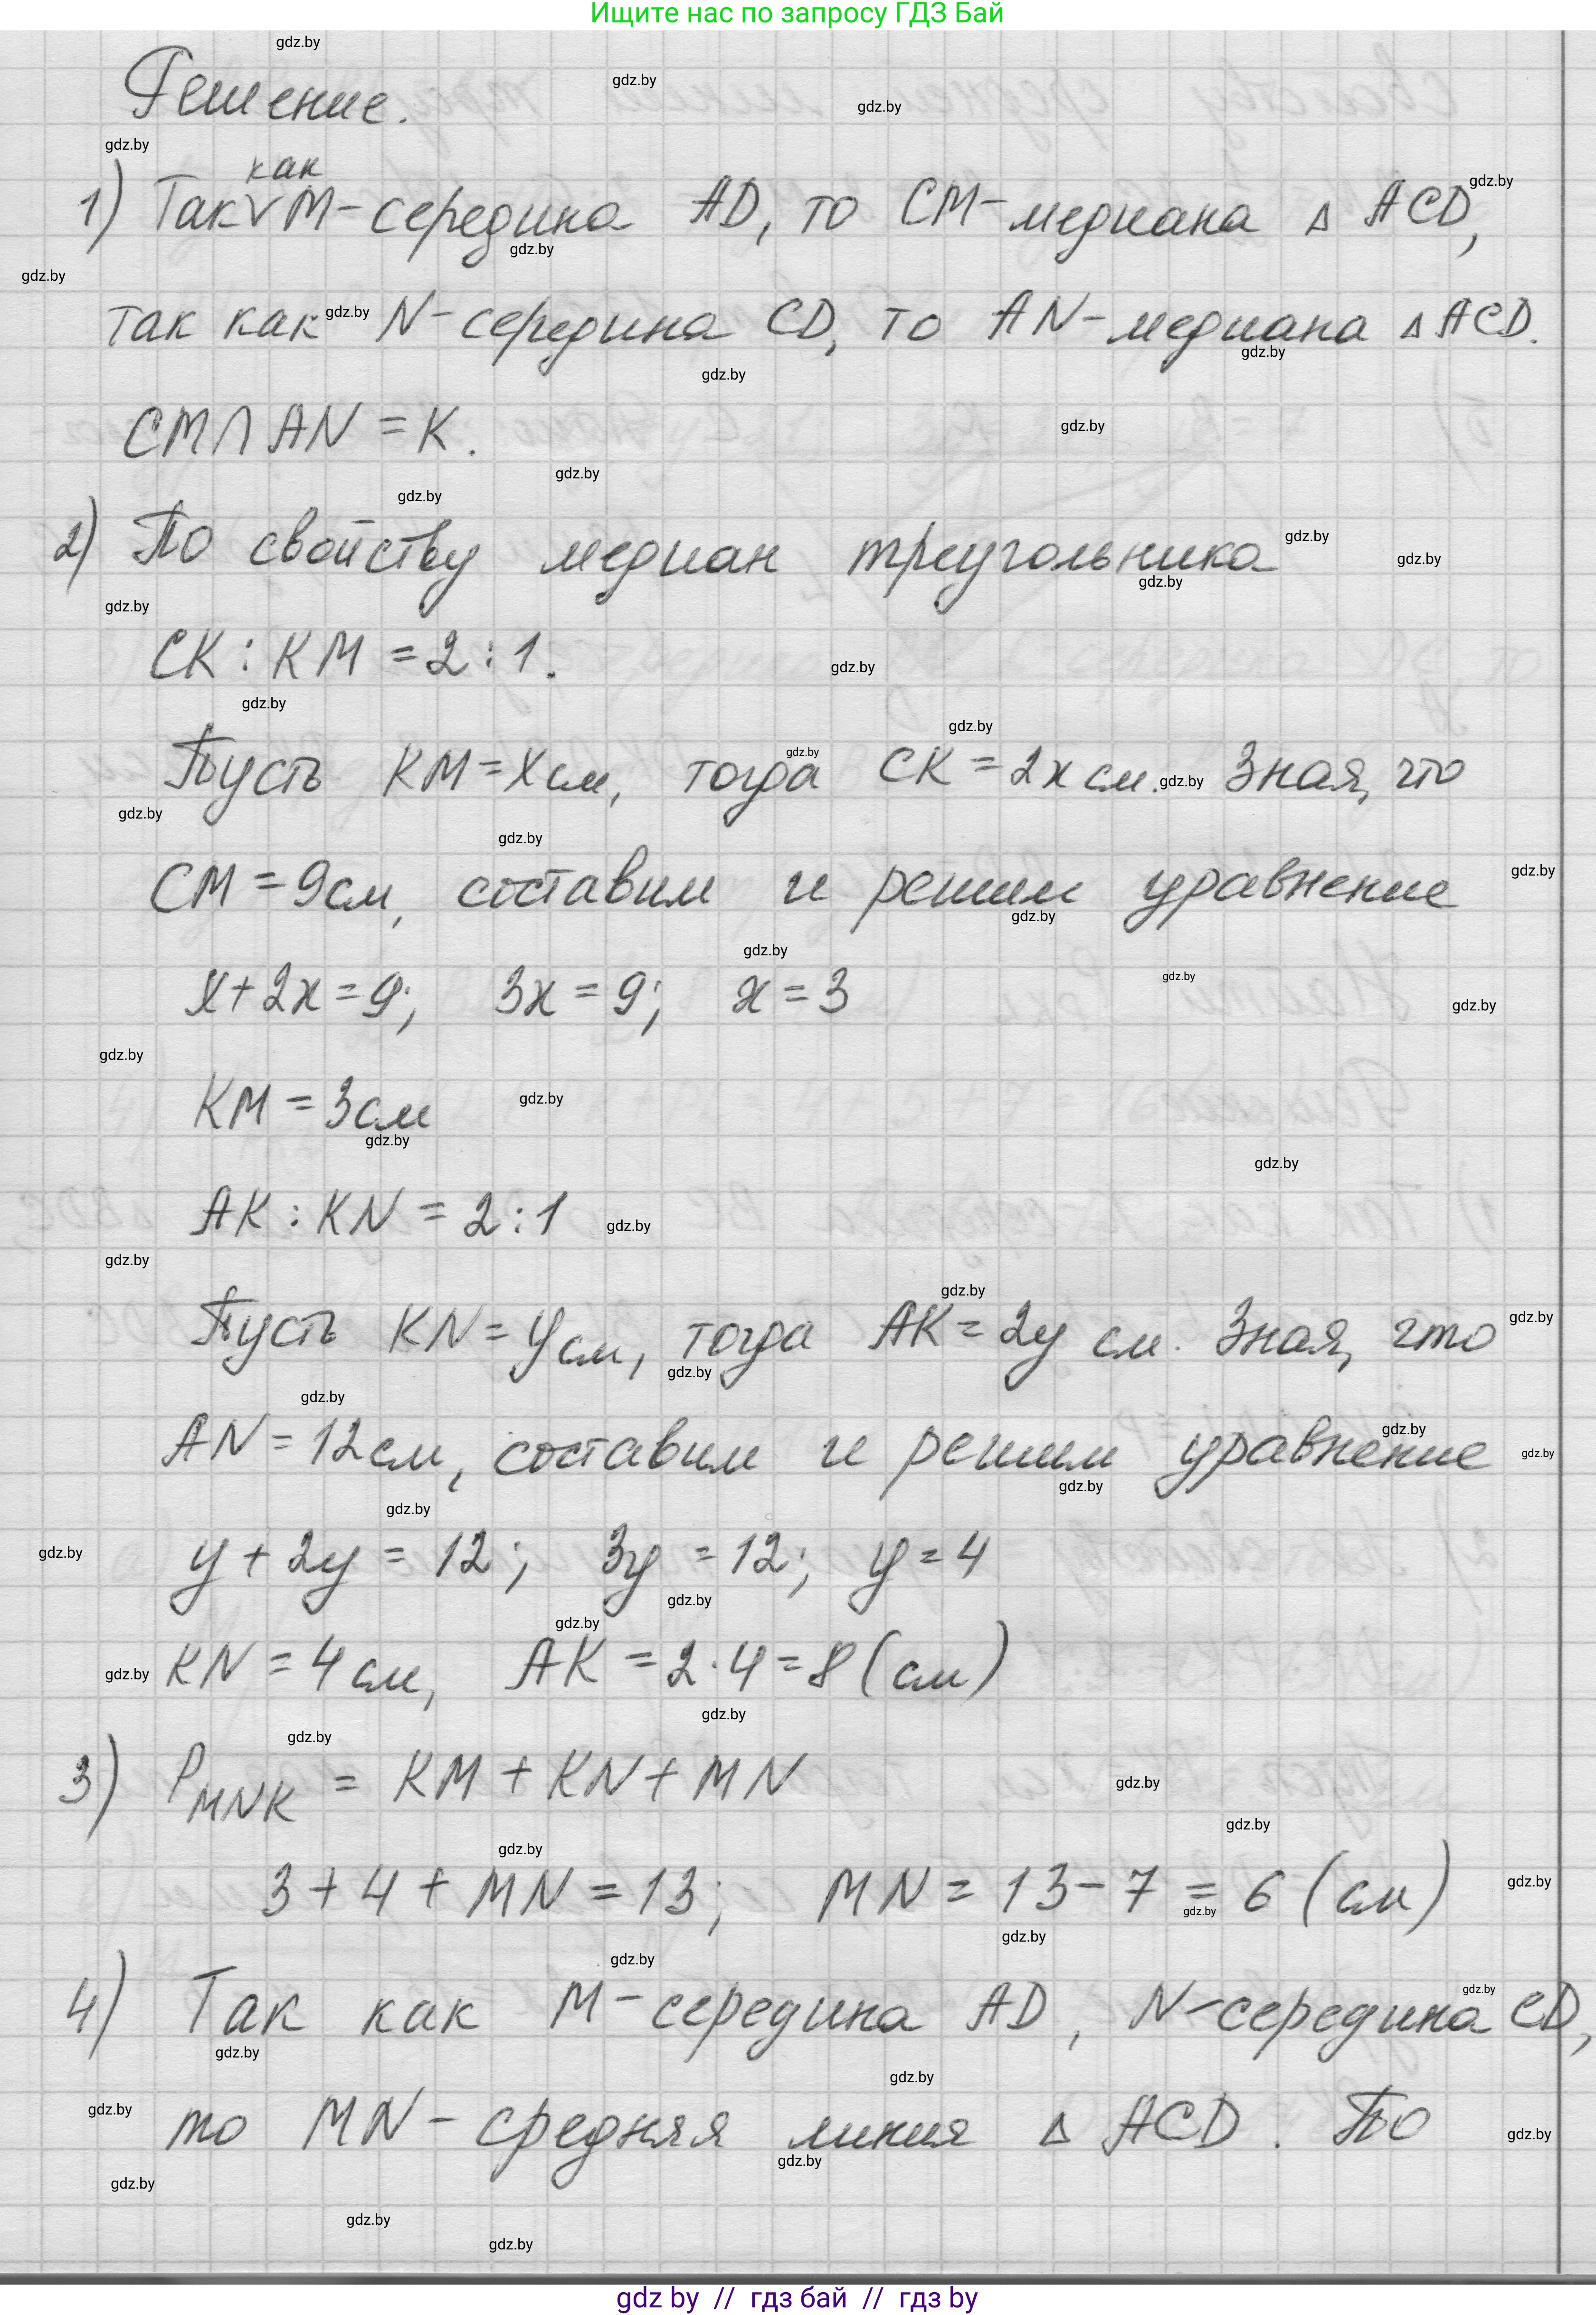 Ищите нас по запросу ГДЗ Бай
Решение.
1) Так как М-середина AD, то CM-медиана Δ ACD,
так как N-середина CD, то AN-медиана Δ ACD.
CM ∩ AN = K.
2) По свойству медиан треугольника
CK : KM = 2 : 1.
Пусть KM = x см, тогда CK = 2x см. Зная, что
CM = 9см, составим и решим уравнение
x + 2x = 9; 3x = 9; x = 3
KM = 3см
AK : KN = 2 : 1
Пусть KN = y см, тогда AK = 2y см. Зная, что
AN = 12см, составим и решим уравнение
y + 2y = 12; 3y = 12; y = 4
KN = 4 см, AK = 2·4 = 8 (см)
3) P MNK = KM + KN + MN
3 + 4 + MN = 13; MN = 13 - 7 = 6 (см)
4) Так как М-середина AD, N-середина CD,
то MN - средняя линия Δ ACD. По
gdz by // гдз бай // гдз by